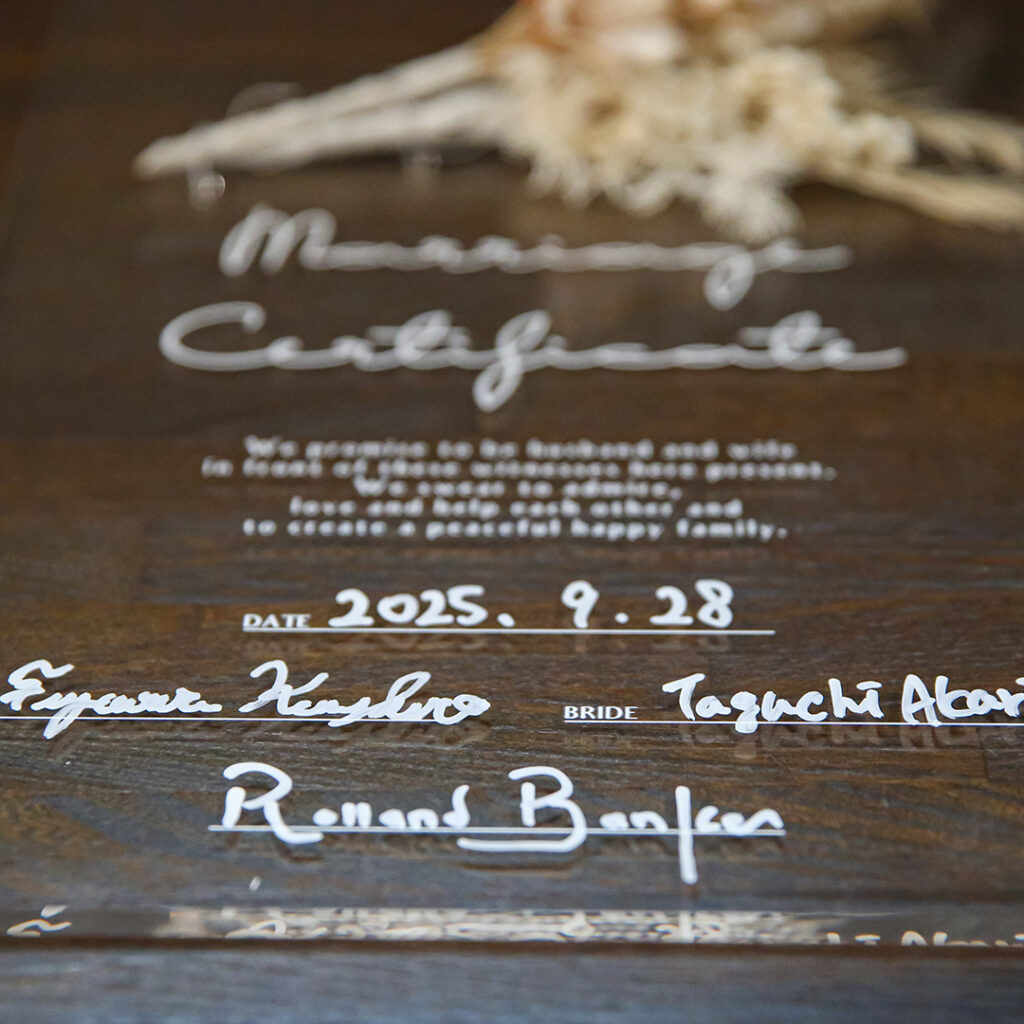 Marriage
Certificate
We promise to be husband and wife
in front of these witnesses here present.
We swear to admire,
love and help each other and
to create a peaceful happy family.
DATE 2025. 9.28
BRIDE Taguchi Akari
Rolland